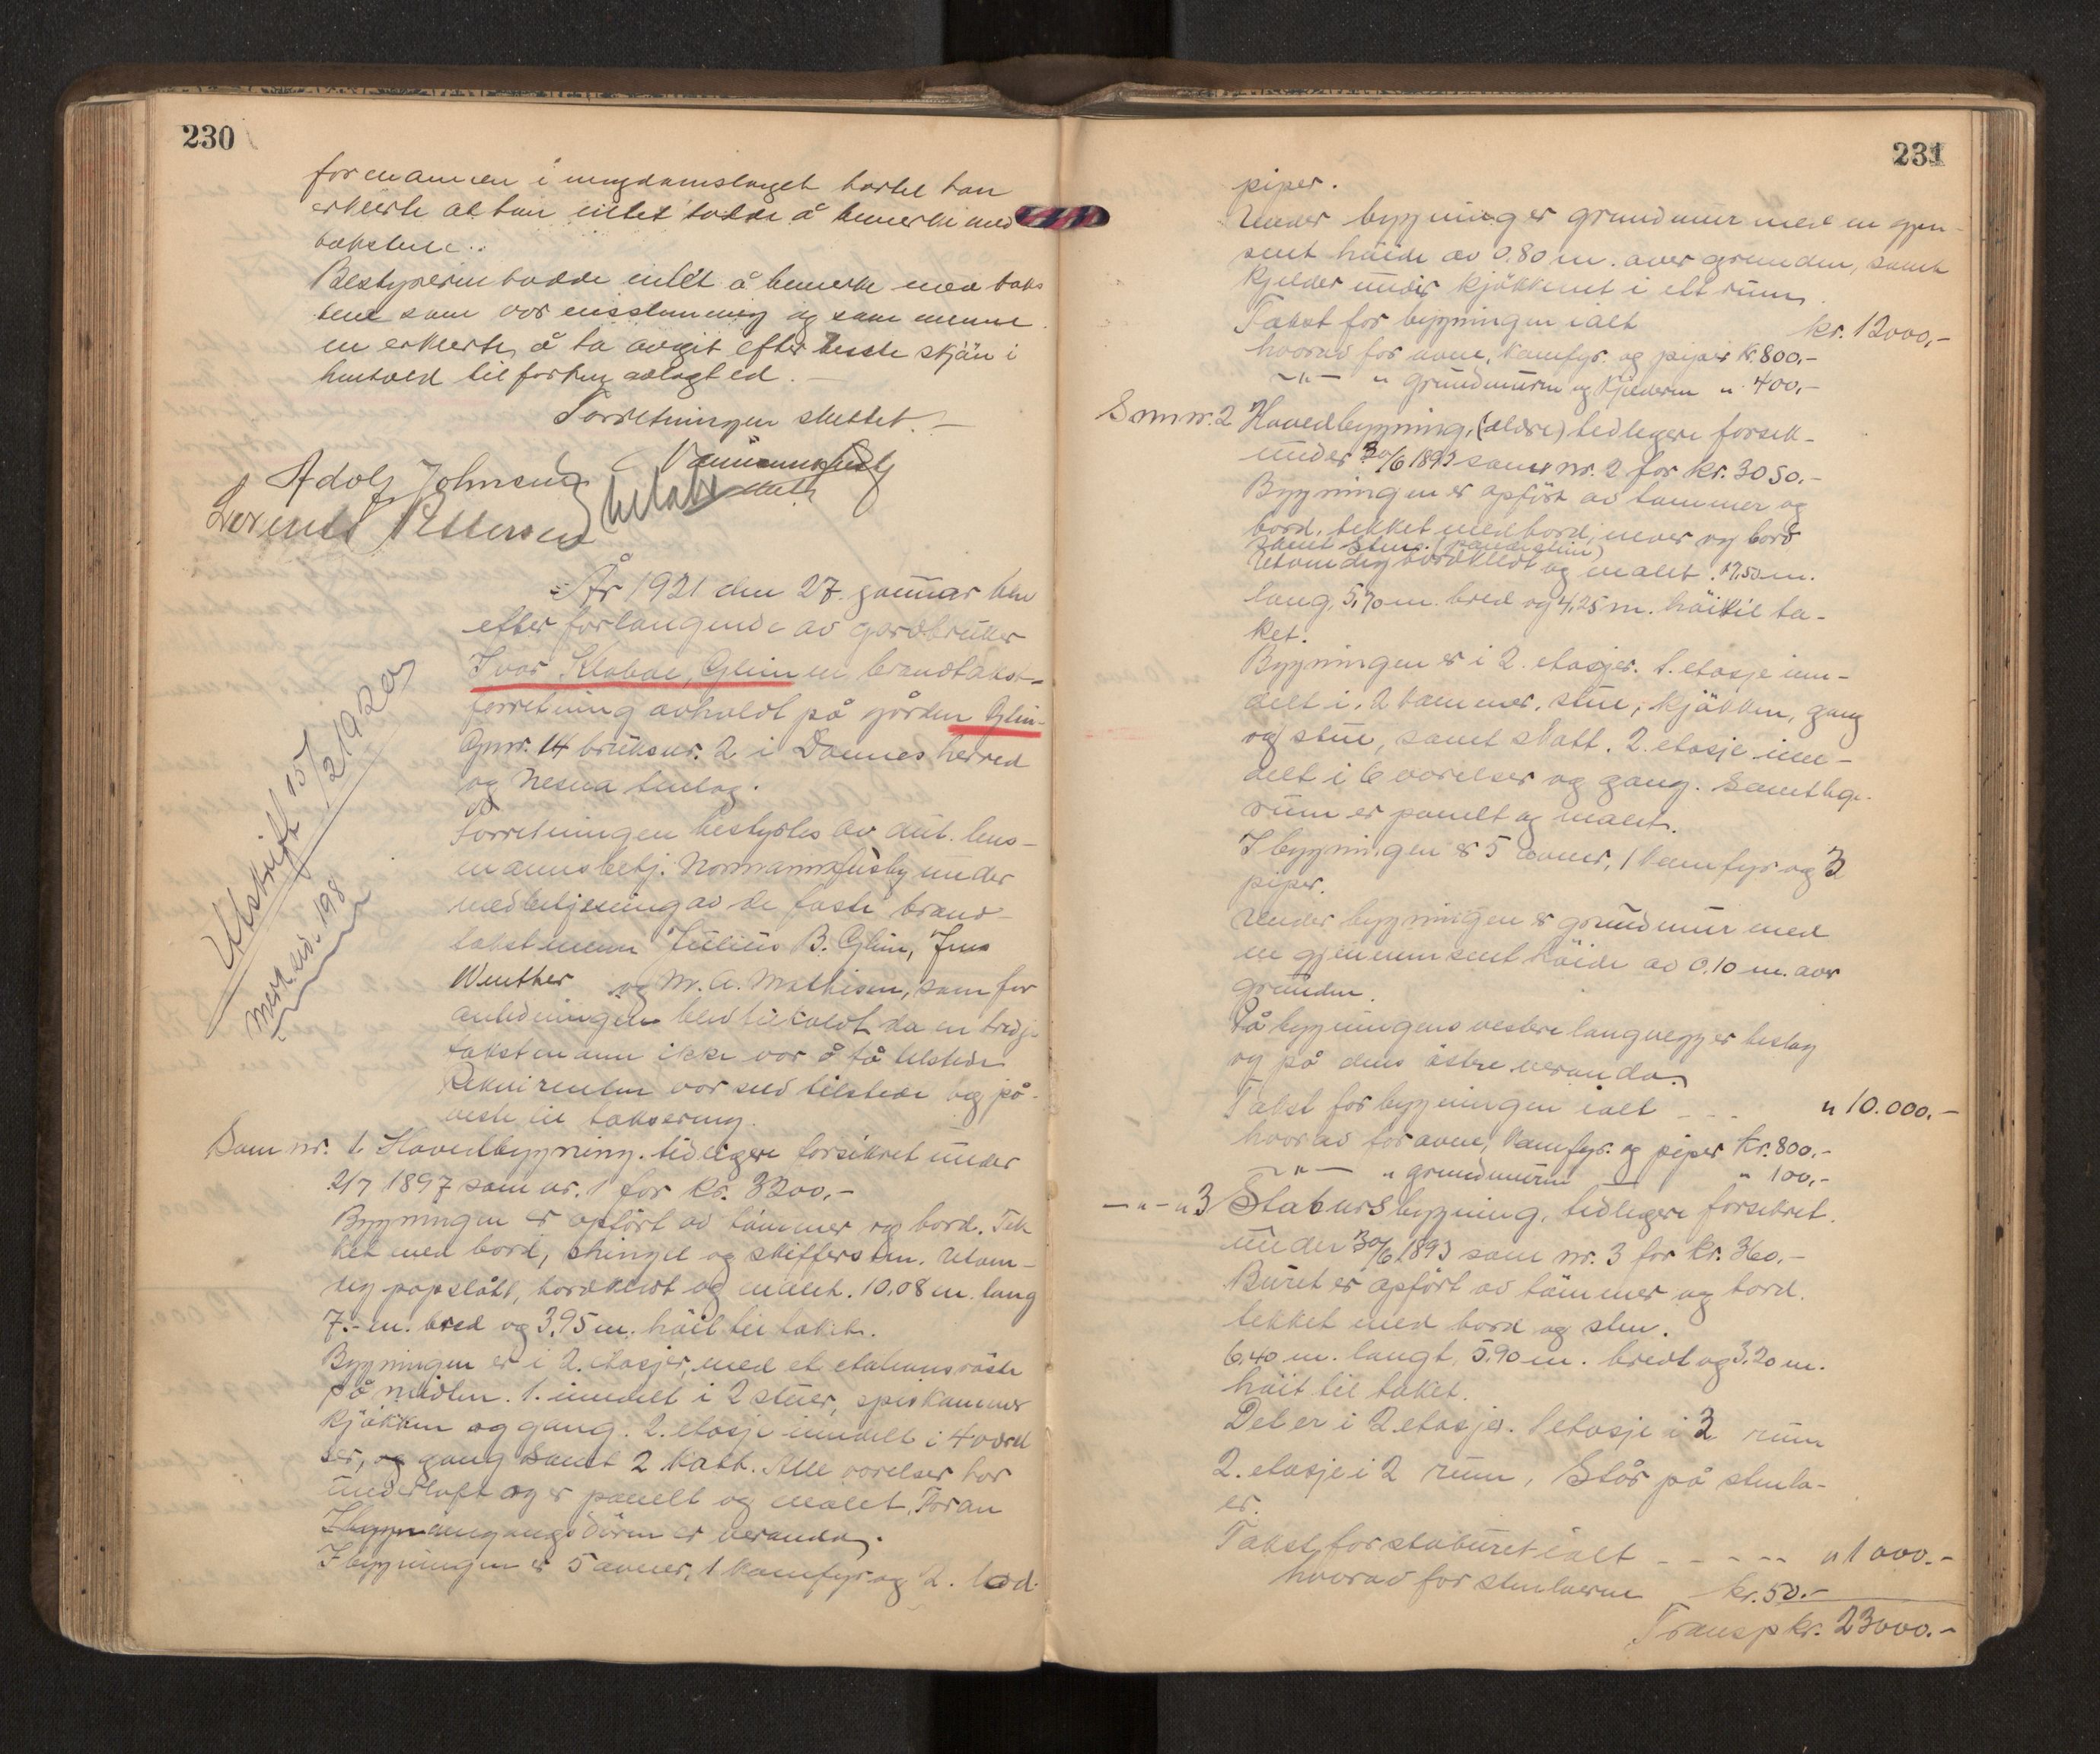 230
formannen i ungdomslaget hertil han
erklærte at han intet hadde å bemerke med
takstene.
Bestyreren hadde intet å bemerke med taks
tene som var enstemmig og som menne
ne erklærte å ha avgit efter beste skjön i
henhold til forhen avlagt ed.
Forretningen sluttet.
Adolf Johnsen
Lorents Pettersen
År 1921 den 27. januar blev
efter forlangende av gårdbruker
Ivar Klabde, Glein en brandtakst-
forretning avholdt på gården Glein
Gnr. 14 bruksnr. 2 i Dønnes herred
og Nesna tinlag.
Forretningen bestyrtes av aut. lens-
mannsbetj. Normann Husby under
medbetjening av de faste brand-
takstmenn Julius B. Glein, Jens
Wenther og M. A. Mathisen, som for
anledningen blev tilkaldt da en tredje
takstmann ikke var å få tilstede
Rekvirenten var selv tilstede og på-
viste til taksering.
Utskrift 15/2 1920
Som nr. 1. Hovedbygning. tidligere forsikret under
2/7 1897 som nr. 1 for kr. 3200,-
Bygningen er opfört av tömmer og bord. Tek
ket med bord, shingel og skiffersten. Utven-
dig papslått, bordklædt og malet. 10.08 m. lang
7.- m. bred og 3,95 m. höi til taket.
Bygningen er i 2. etasjer, med et
på midten. 1. inndelt i 2 stuer, spiskammer
kjökken og gang. 2. etasje inndelt i 4 værel
ser, og gang samt 2 kott. Alle værelser har
underloft og er panelt og malet. Foran
inngangsdören er veranda.
I bygningen er 5 ovner, 1 komfyr og 2.
231
piper.
Under bygningen er grundmur med en gjen-
snit höide av 0.80 m. over grunden, samt
kjelder under kjökkenet i ett rum.
Takst for bygningen ialt kr. 12000,-
hvorav for ovne, komfyr. og piper kr. 800,-
-"- " grundmuren og kjelderen " 400,-
Som nr. 2 Hovedbygning, (eldre) tidligere forsik-
under 30/6 1893 som nr. 2 for kr. 3050.-
Bygningen er opfört av tömmer og
bord, tekket med bord, never og bord
samt sten.
Utvendig bordklædt og malet. 17,50 m.
lang, 5,70 m. bred og 4,25 m. höi til ta-
ket.
Bygningen er i 2. etasjer. 1. etasje inn-
delt i 2 kammer, stue, kjökken, gang
og stue, samt kott. 2. etasje inn-
delt i 6 værelser og gang. Samtlige
rum er panelt og malet.
I bygningen er 5 ovner, 1 komfyr og 3
piper.
Under bygningen er grundmur med
en gjennemsnit höide av 0.10 m. over
grunden.
På bygningens vestre langvegg er beslag
og på dens östre veranda.
Takst for bygningen ialt - - - " 10.000.-
hvorav for ovne, komfyr. og piper kr. 800.-
-"- " grundmuren " 100,-
-"- " 3 Stabursbygning, tidligere forsikret
under 30/6 1893 som nr. 3 for kr. 360.-
Buret er opfört av tömmer og bord.
tekket med bord og sten.
6,40 m. langt, 5,90 m. bredt og 3,20 m.
höit til taket.
Det er i 2 etasjer. 1 etasje i 3 rum
2. etasje i 2 rum, Står på stenta-
er.
Takst for staburet ialt - - - - - " 1000.-
hvorav for stentaerne kr. 50.-
Transp kr. 23000.-